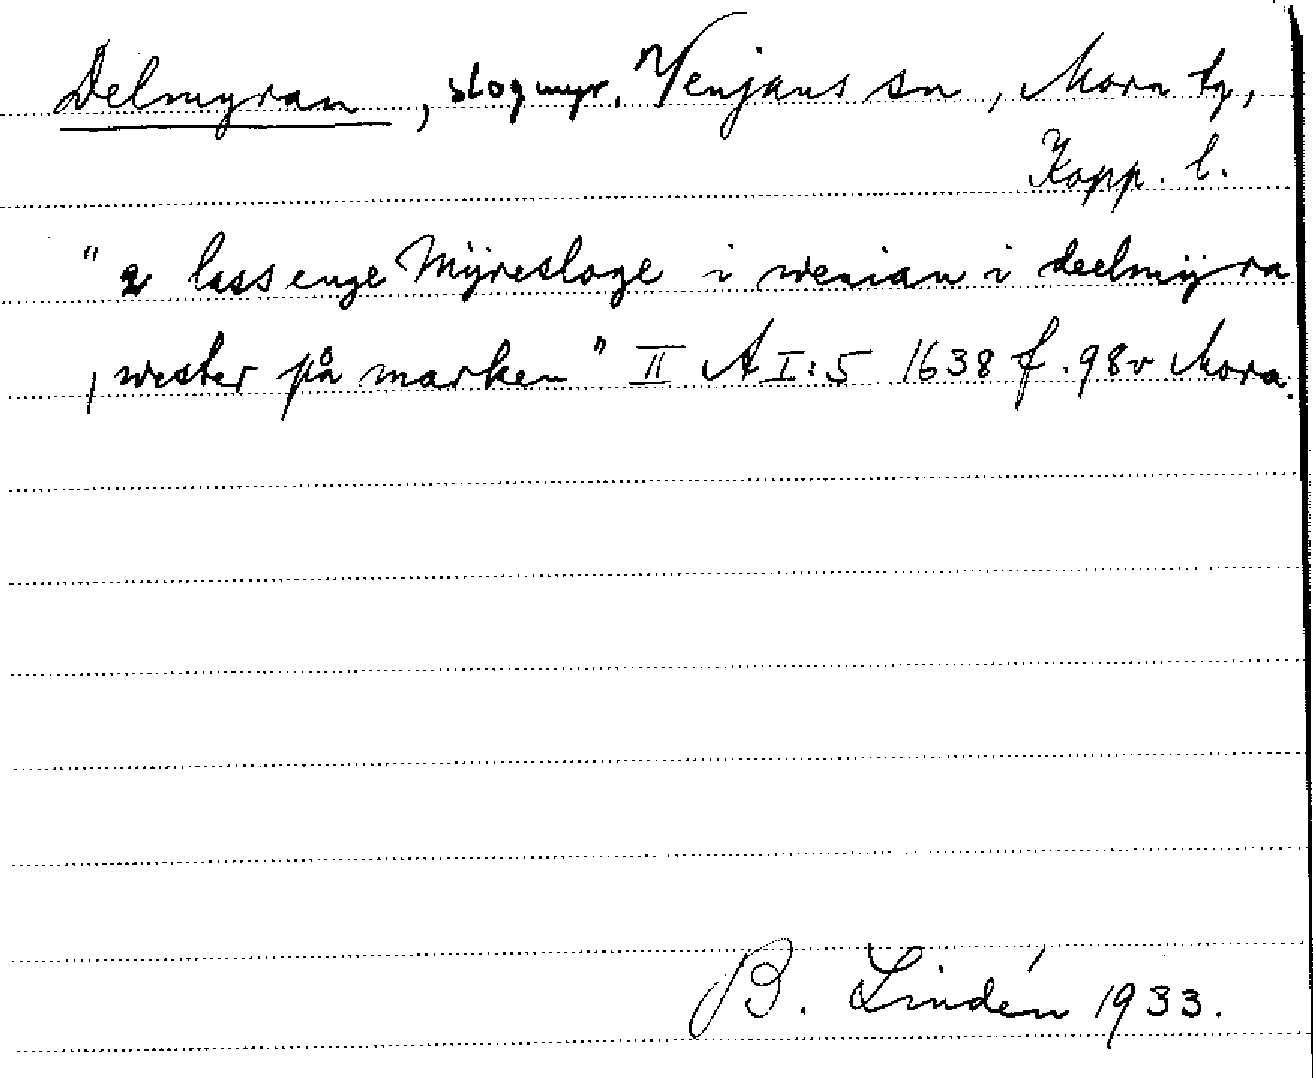 Delmyran, slogmyr, Venjans sn, Mora tg,
Kopp. l.
"2 lass enge Mÿresloge i wenian i deelmÿra
, wester på marken" II A I:5 1638 f. 98v Mora.
B. Lindén 1933.